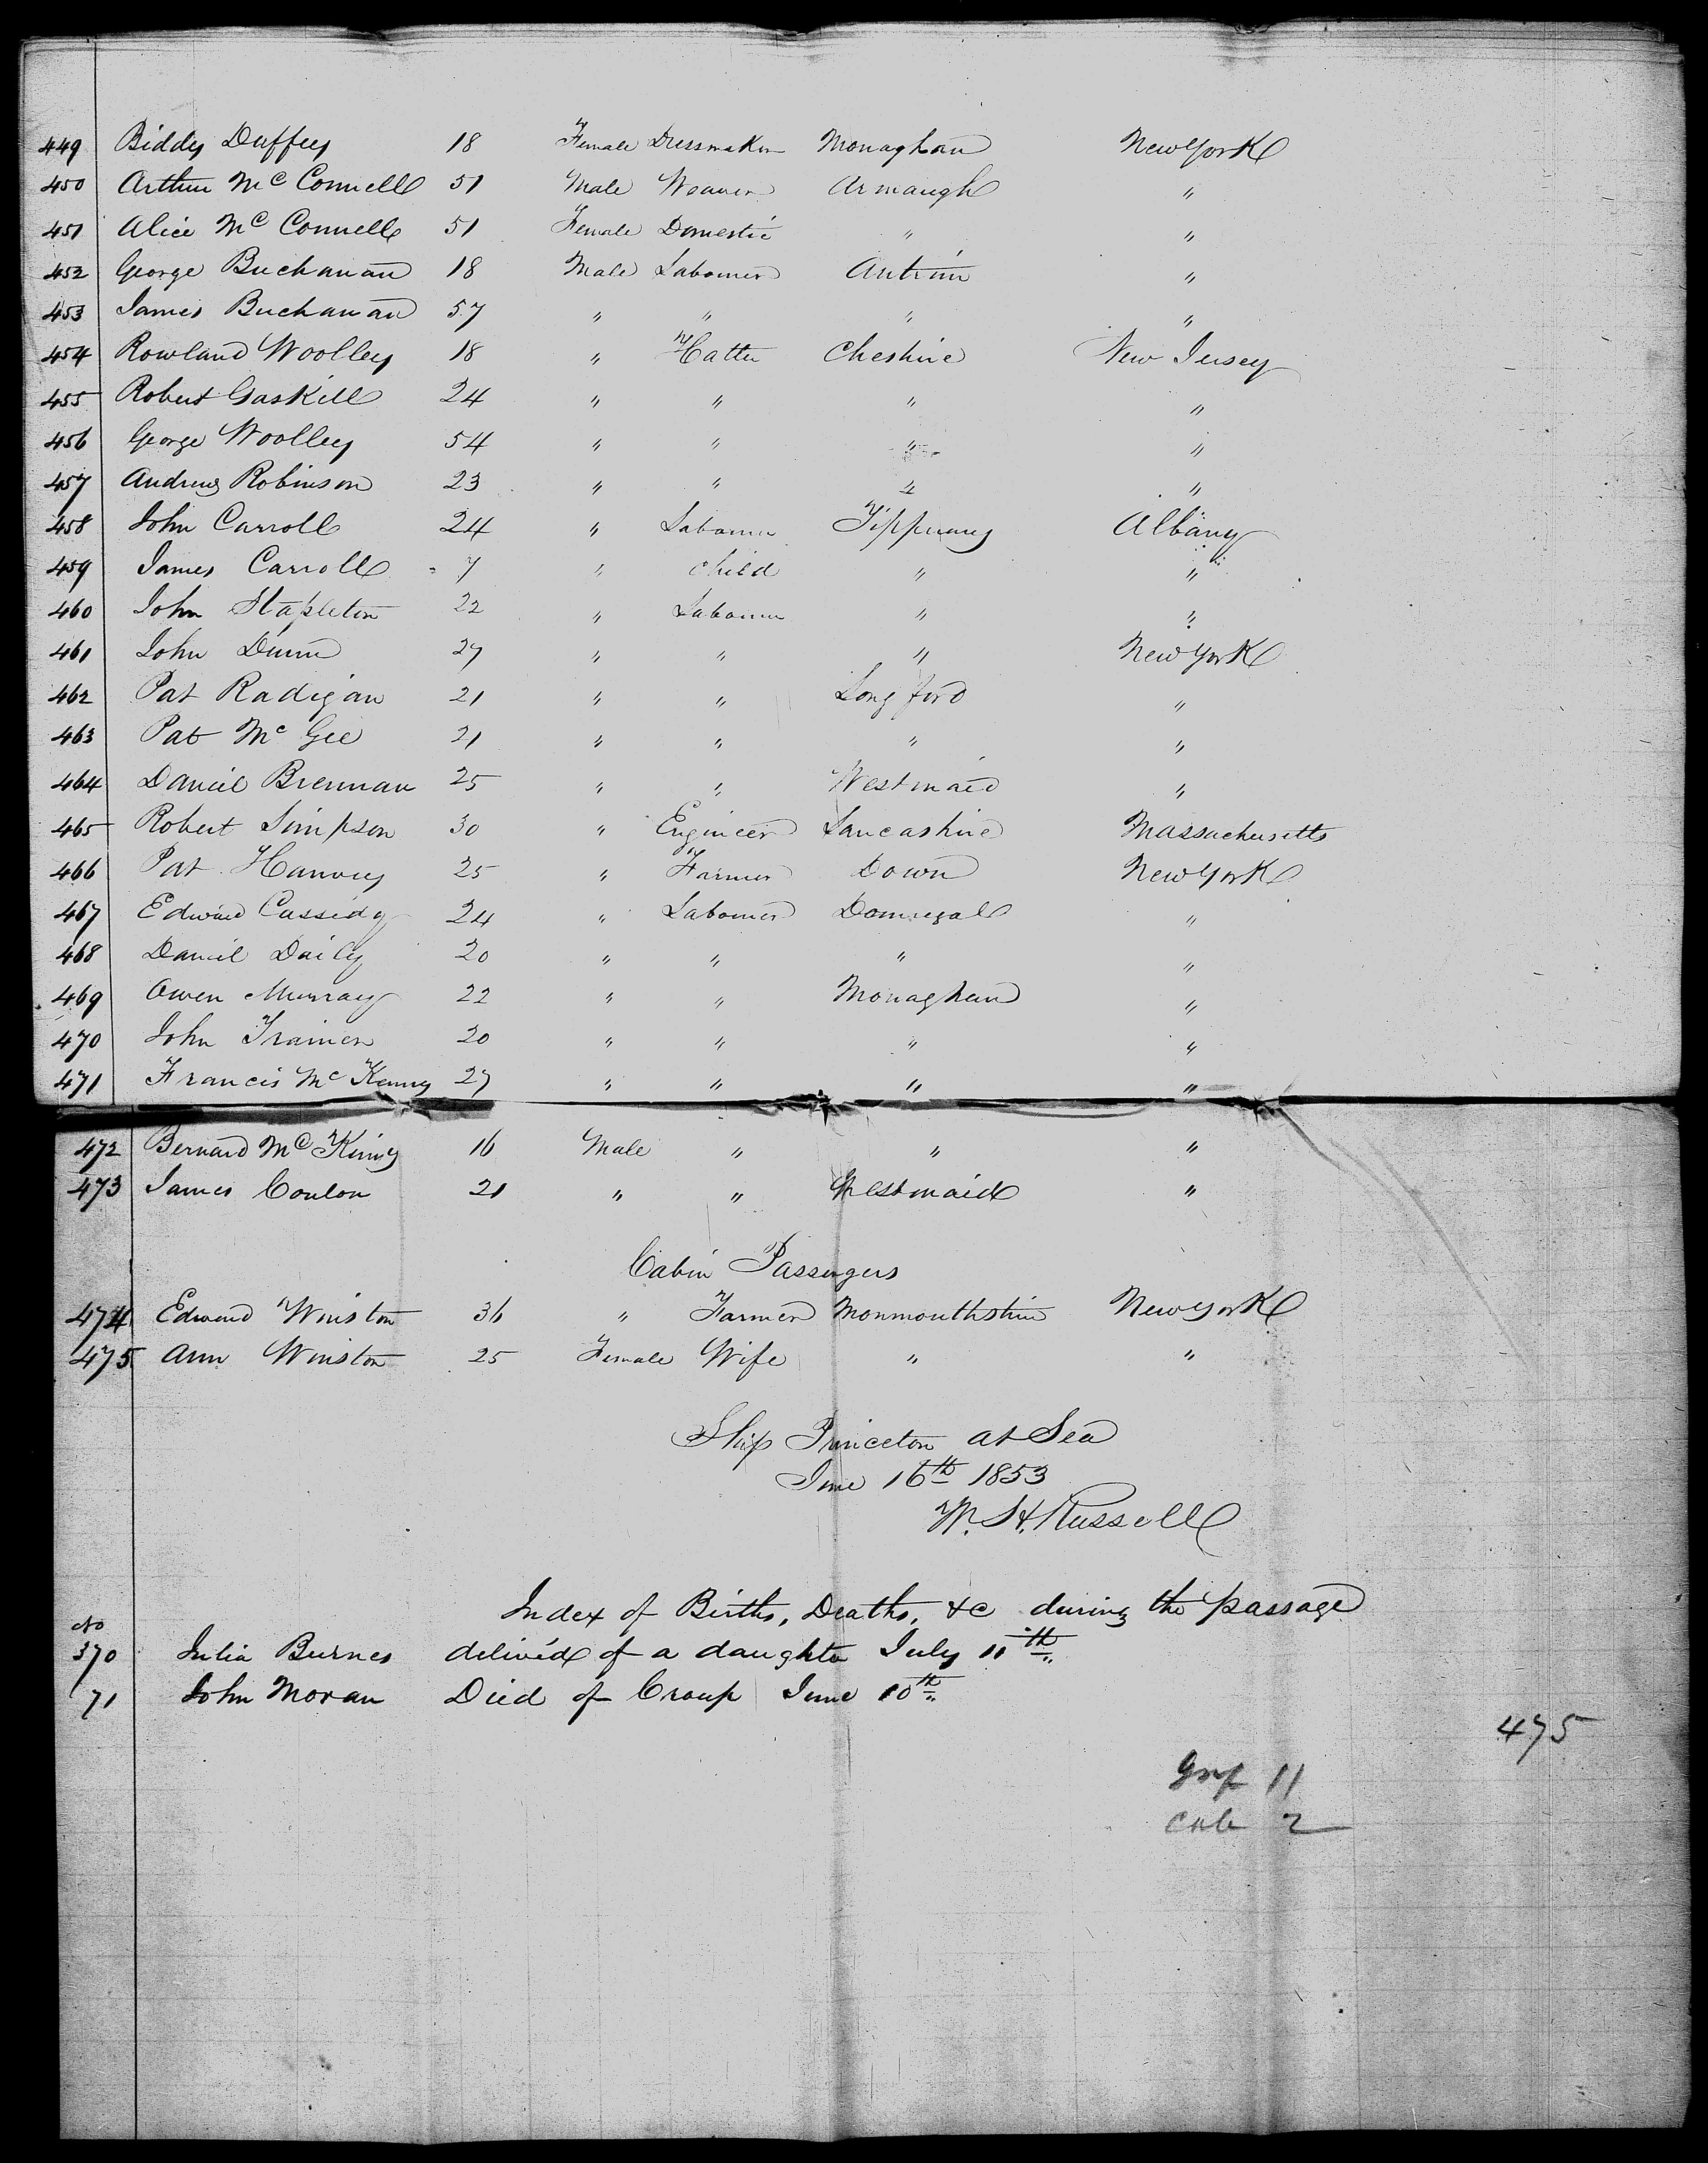 449 Biddy Duffey 18 Female Dressmaker Monaghan New York
450 Arthur McConnell 51 Male Weaver Armaugh "
451 Alice McConnell 51 Female Domestic " "
452 George Buchanan 18 Male Labourer Antrim "
453 James Buchanan 57 " " " "
454 Rowland Woolley 18 " Hatter Cheshire New Jersey
455 Robert Gaskill 24 " " " "
456 George Woolley 54 " " " "
457 Andrew Robinson 23 " " " "
458 John Carroll 24 " Labourer Tipperary Albany
459 James Carroll 7 " Child " "
460 John Stapleton 22 " Labourer " "
461 John Dunn 27 " " " New York
462 Pat Radigan 21 " " Longford "
463 Pat McGee 21 " " " "
464 Daniel Brennan 25 " " Westmaid "
465 Robert Simpson 30 " Engineer Lancashire Massachusetts
466 Pat Hanvey 25 " Farmer Down New York
467 Edward Cassidy 24 " Labourer Donnegal "
468 Daniel Daily 20 " " " "
469 Owen Murray 22 " " Monaghan "
470 John Trainer 20 " " " "
471 Francis McKenny 27 " " " "
472 Bernard McKinny 16 Male " " "
473 James Conlon 21 " " Westmaid "
Cabin Passengers
474 Edward Winston 36 " Farmer Monmouthshire New York
475 Ann Winston 25 Female Wife " "
Ship Princeton at Sea
June 16th 1853
W. H. Russell
Index of Births, Deaths, &c during the passage
No
370 Julia Burnes deliv'd of a daughter July 11th
71 John Moran Died of Croup June 10th
475
11
2